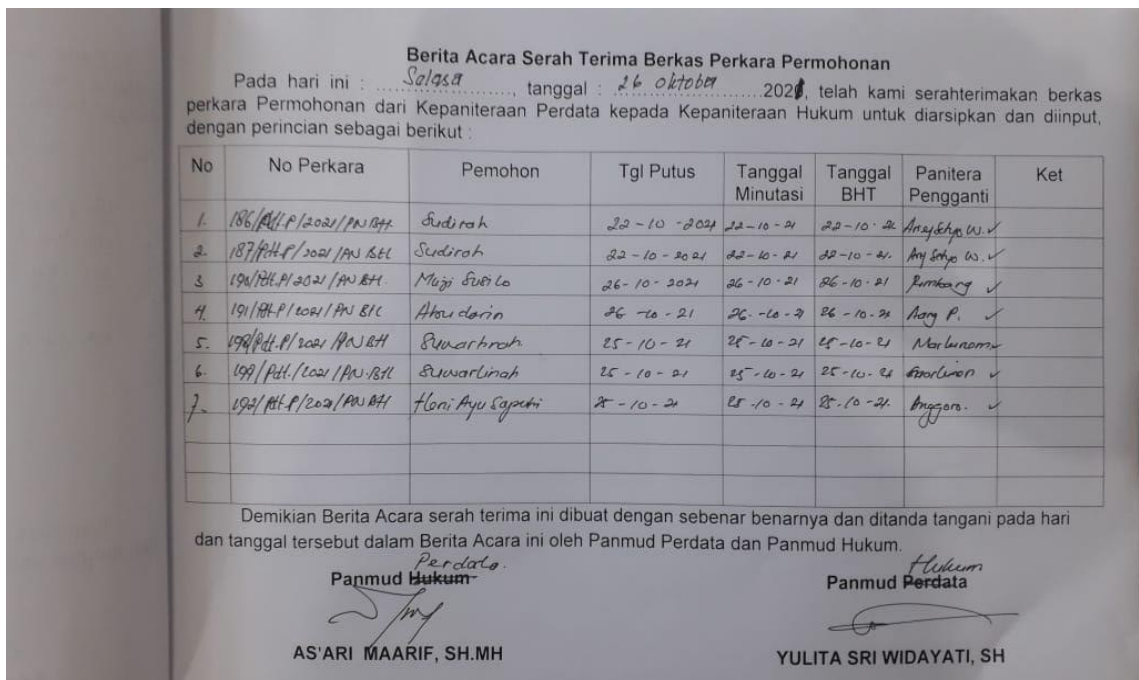 Berita Acara Serah Terima Berkas Perkara Permohonan
Pada hari ini : Selasa, tanggal : 26 oktober 2021, telah kami serahterimakan berkas
perkara Permohonan dari Kepaniteraan Perdata kepada Kepaniteraan Hukum untuk diarsipkan dan diinput,
dengan perincian sebagai berikut :
No No Perkara Pemohon Tgl Putus Tanggal Minutasi Tanggal BHT Panitera Pengganti Ket
1. 186/Pdt.P/2021/PN Btl Sudirah 22-10-2021 22-10-21 22-10-21
2. 187/Pdt.P/2021/PN Btl Sudirah 22-10-2021 22-10-21 22-10-21.
3 190/Pdt.P/2021/PN Btl. Muji Susilo 26-10-2021 26-10-21 26-10-21
4. 191/Pdt.P/2021/PN Btl 26-10-21 26-10-21 26-10-21 P.
5. /Pdt.P/2021/PN Btl 25-10-21 25-10-21 25-10-21
6. 199/Pdt./2021/PN.Btl Suwarlinah 25-10-21 25-10-21 25-10-21
7. 192/Pdt.P/2021/PN Btl Heni Ayu Saputri 25-10-21 25-10-21 25-10-21. Anggoro.
Demikian Berita Acara serah terima ini dibuat dengan sebenar benarnya dan ditanda tangani pada hari
dan tanggal tersebut dalam Berita Acara ini oleh Panmud Perdata dan Panmud Hukum.
Perdata. Hukum
Panmud Hukum Panmud Perdata
AS'ARI MAARIF, SH.MH YULITA SRI WIDAYATI, SH